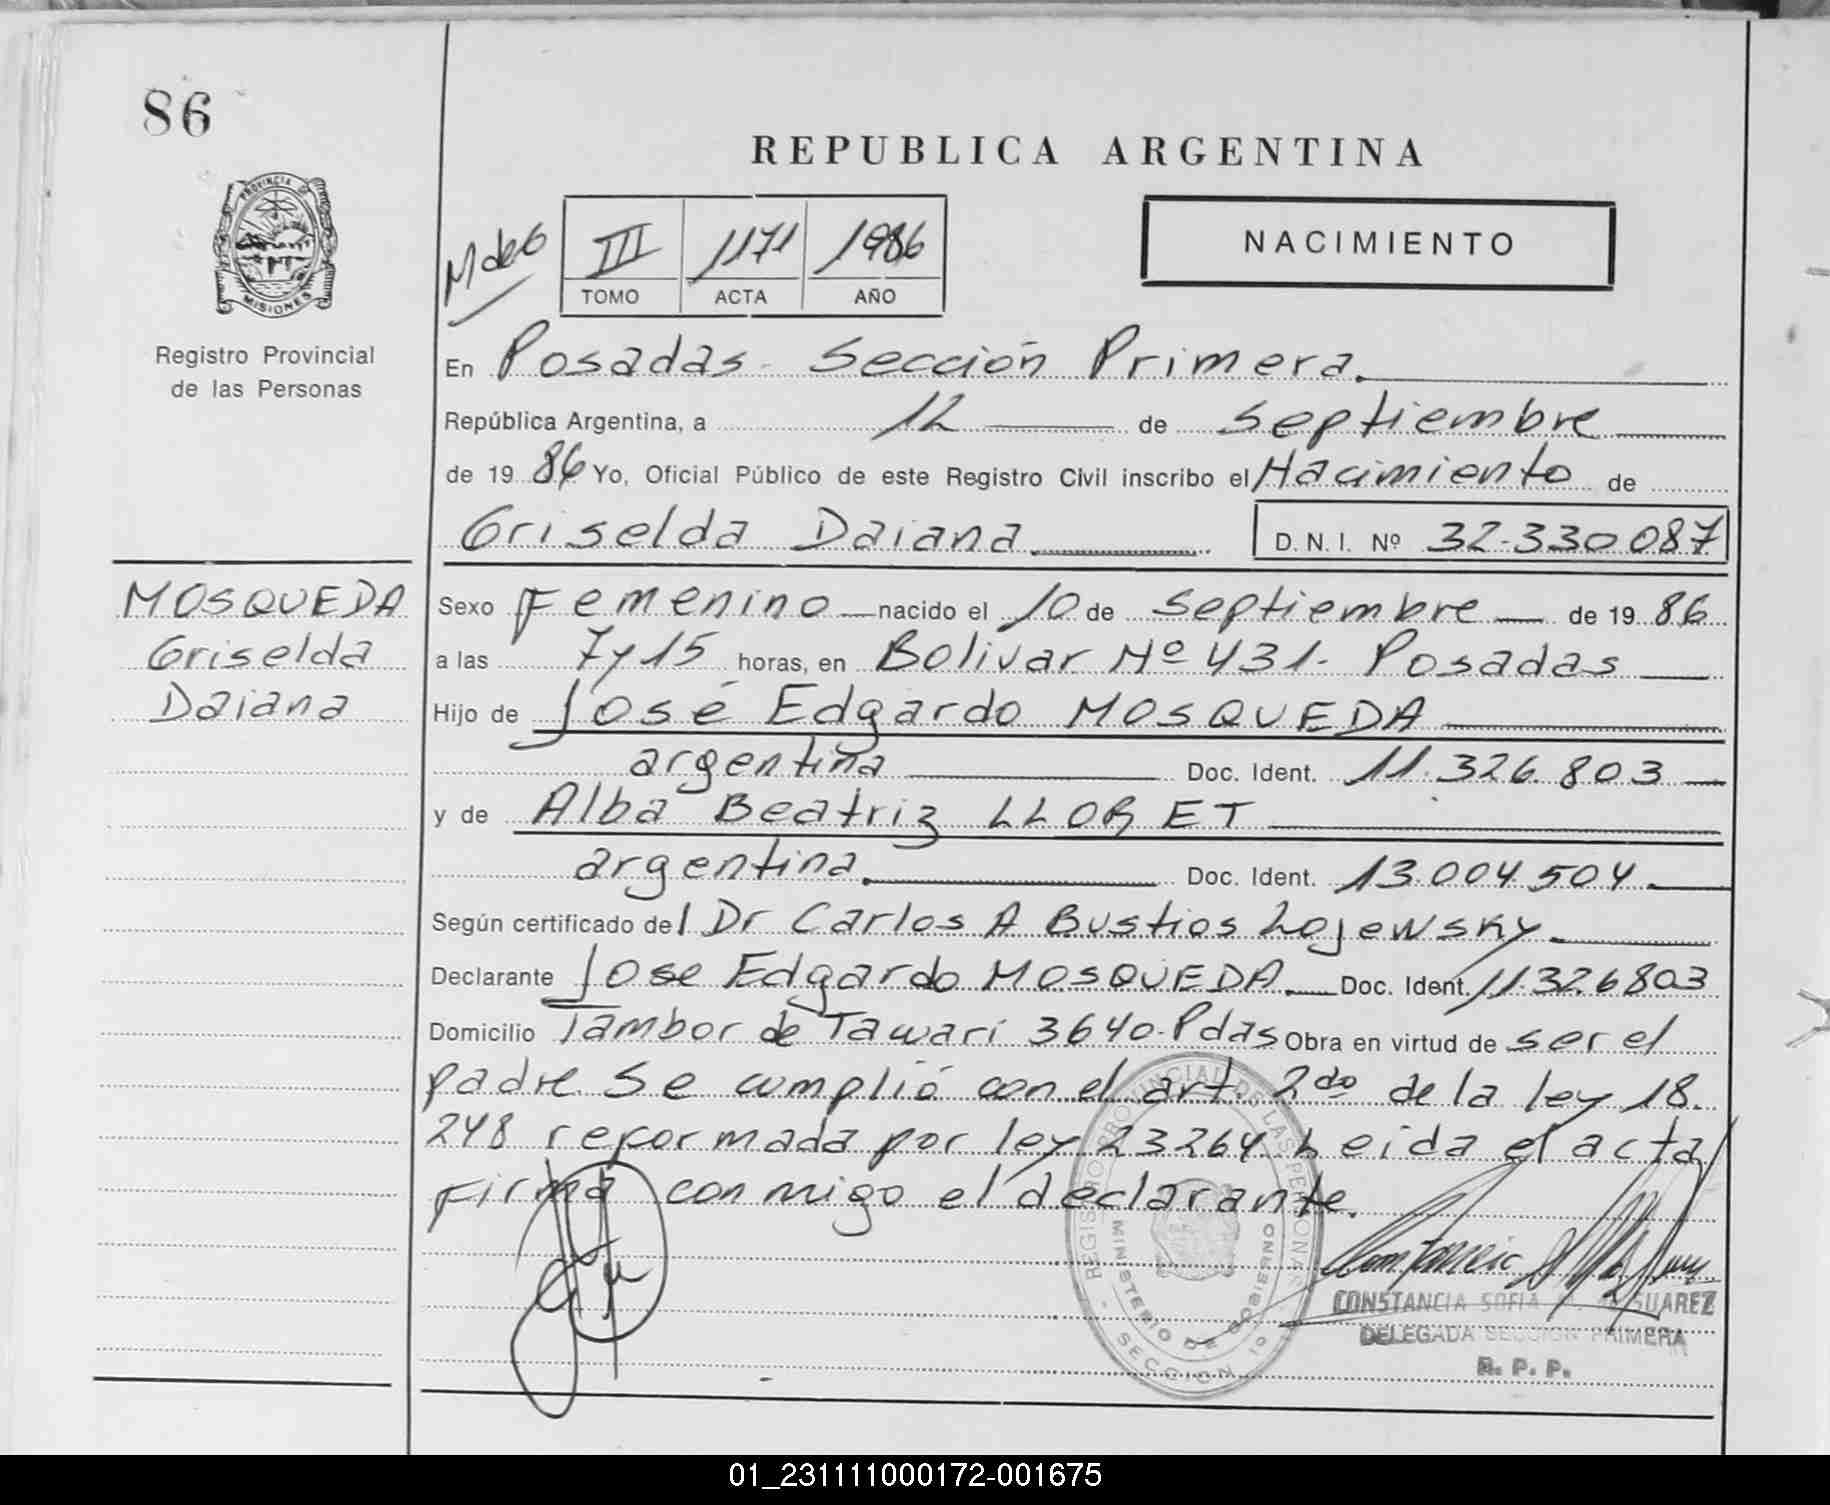 86
PROVINCIA DE
MISIONES
Registro Provincial
de las Personas
REPUBLICA ARGENTINA
III 1171 1986
TOMO ACTA AÑO
NACIMIENTO
En Posadas - Sección Primera.
República Argentina, a 12 de septiembre
de 19 86 Yo, Oficial Público de este Registro Civil inscribo el Nacimiento de
Griselda Daiana D.N.I. Nº 32-330 087
MOSQUEDA
Griselda
Daiana
Sexo Femenino nacido el 10 de septiembre de 19 86
a las 7 y 15 horas, en Bolivar Nº 431- Posadas
Hijo de José Edgardo MOSQUEDA
argentina Doc. Ident. 11.326.803
y de Alba Beatriz LLORET
argentina. Doc. Ident. 13.004.504.
Según certificado del Dr Carlos A Bustios Lojewsky.
Declarante Jose Edgardo MOSQUEDA. Doc. Ident. 11.326803
Domicilio Tambor de Tawari 3640-Pdas Obra en virtud de ser el
padre. Se cumplió con el art. 2do de la ley 18.
248 reformada por ley 23264. Leida el acta
firma conmigo el declarante.
REGISTRO PROVINCIAL DE LAS PERSONAS
MINISTERIO DE GOBIERNO
SECCION 1º
CONSTANCIA SOFIA SUAREZ
DELEGADA SECCION PRIMERA
R. P. P.
01_231111000172-001675